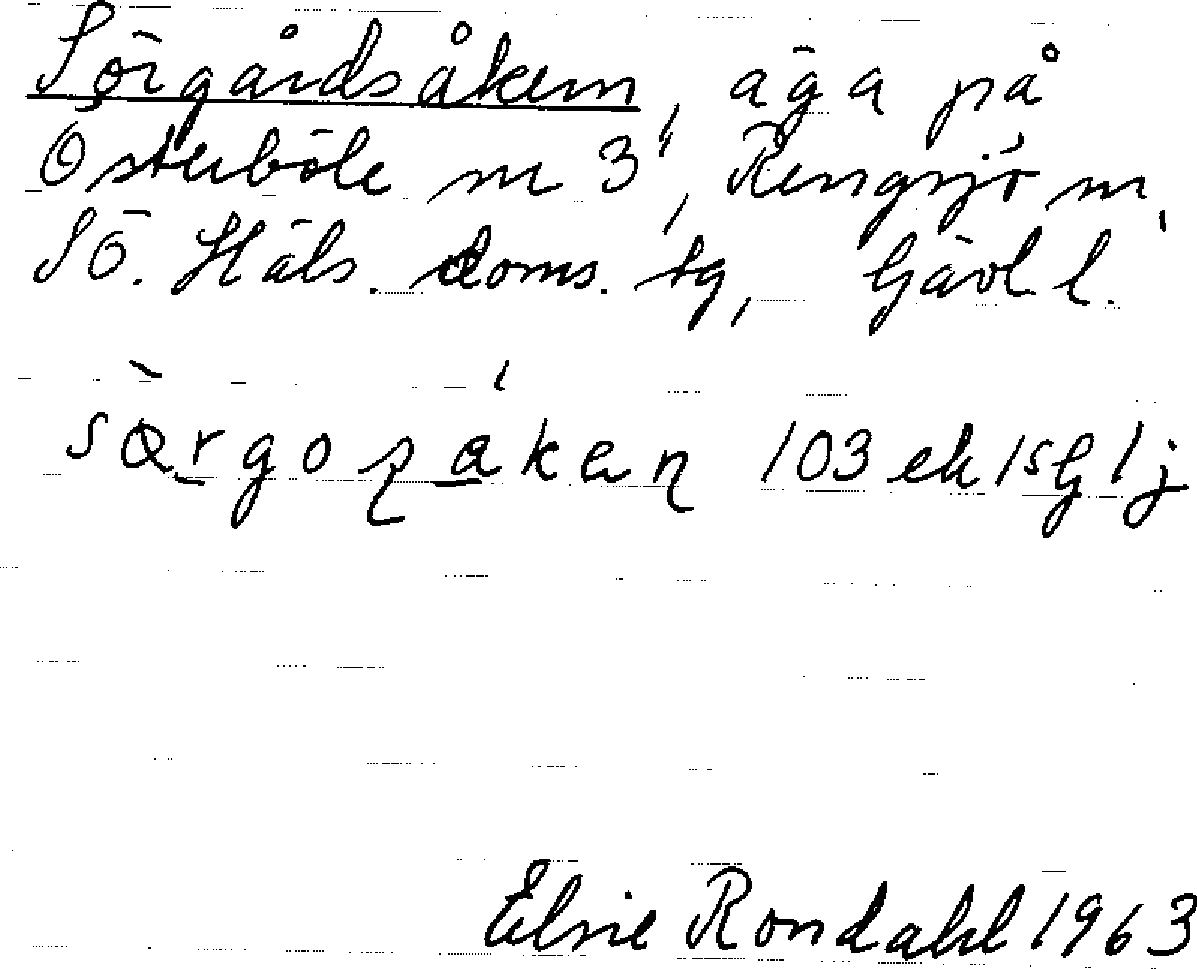 Sörgårdsåkern, äga på
Österböle nr 3", Rengsjö sn,
SÖ. Häls. doms. tg, Gävl. l.
sörgoʂåkaɳ 103 ek
Elsie Rondahl 1963